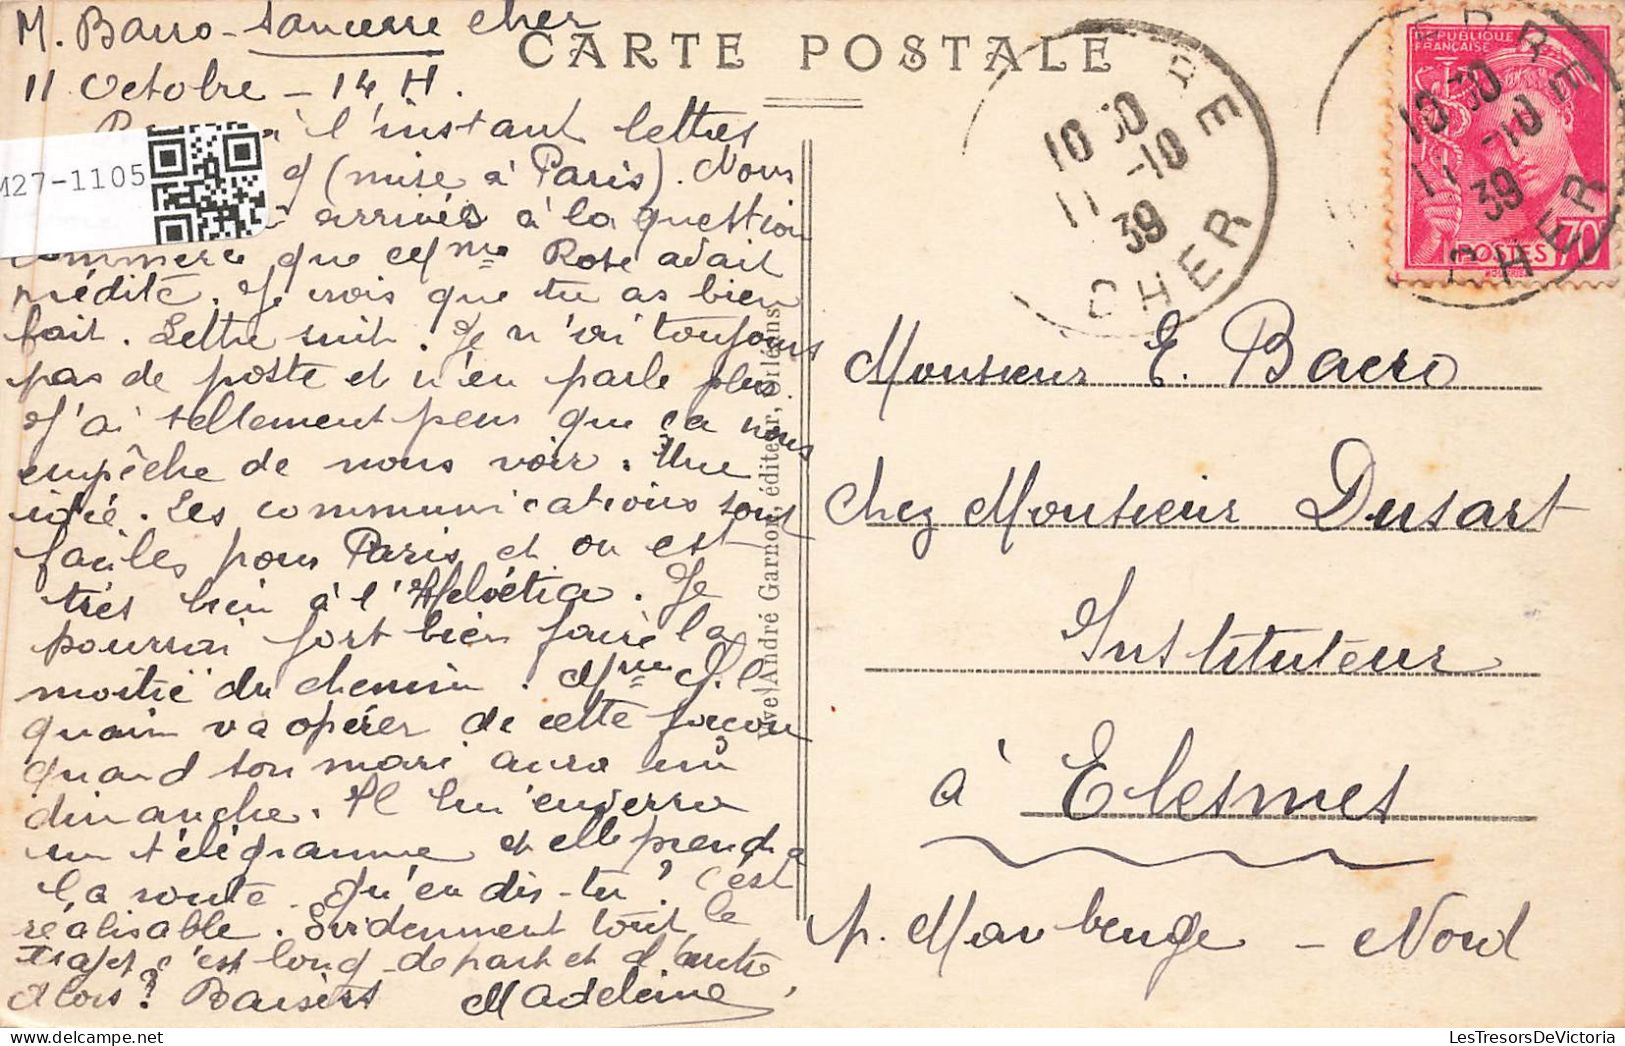 M. Barro - Sancerre Cher
CARTE POSTALE
11 Octobre - 14 H.
à l'instant lettres
(mise à Paris). Nous
arrivés à la question
commerce que cef Mme Rose avait
prédité. Je crois que tu as bien
fait. Lettre suit. Je n'ai toujours
pas de poste et n'en parle plus.
J'ai tellement peur que ça nous
empêche de nous voir. Une
idée. Les communications sont
faciles pour Paris et on est
très bien à l'Helvétia. Je
pourrai fort bien faire la
moitié du chemin. Mme
va opérer de cette façon
quand son mari aura un
dimanche. Il lui enverra
un télégramme et elle prendra
la route. Qu'en dis-tu? C'est
réalisable. Evidemment tout le
trajet c'est long de part et d'autre
Alors? Baisers Madeleine
M27-1105
Vve André Garnon, éditeur, Orléans
10 30
11-10
39
CHER
RÉPUBLIQUE
FRANÇAISE
10 30
11-10
39
CHER
POSTES
70c
Monsieur E. Baero
chez Monsieur Dusart
Instituteur
à Elesmes
p. Maubeuge - Nord
LesTresorsDeVictoria